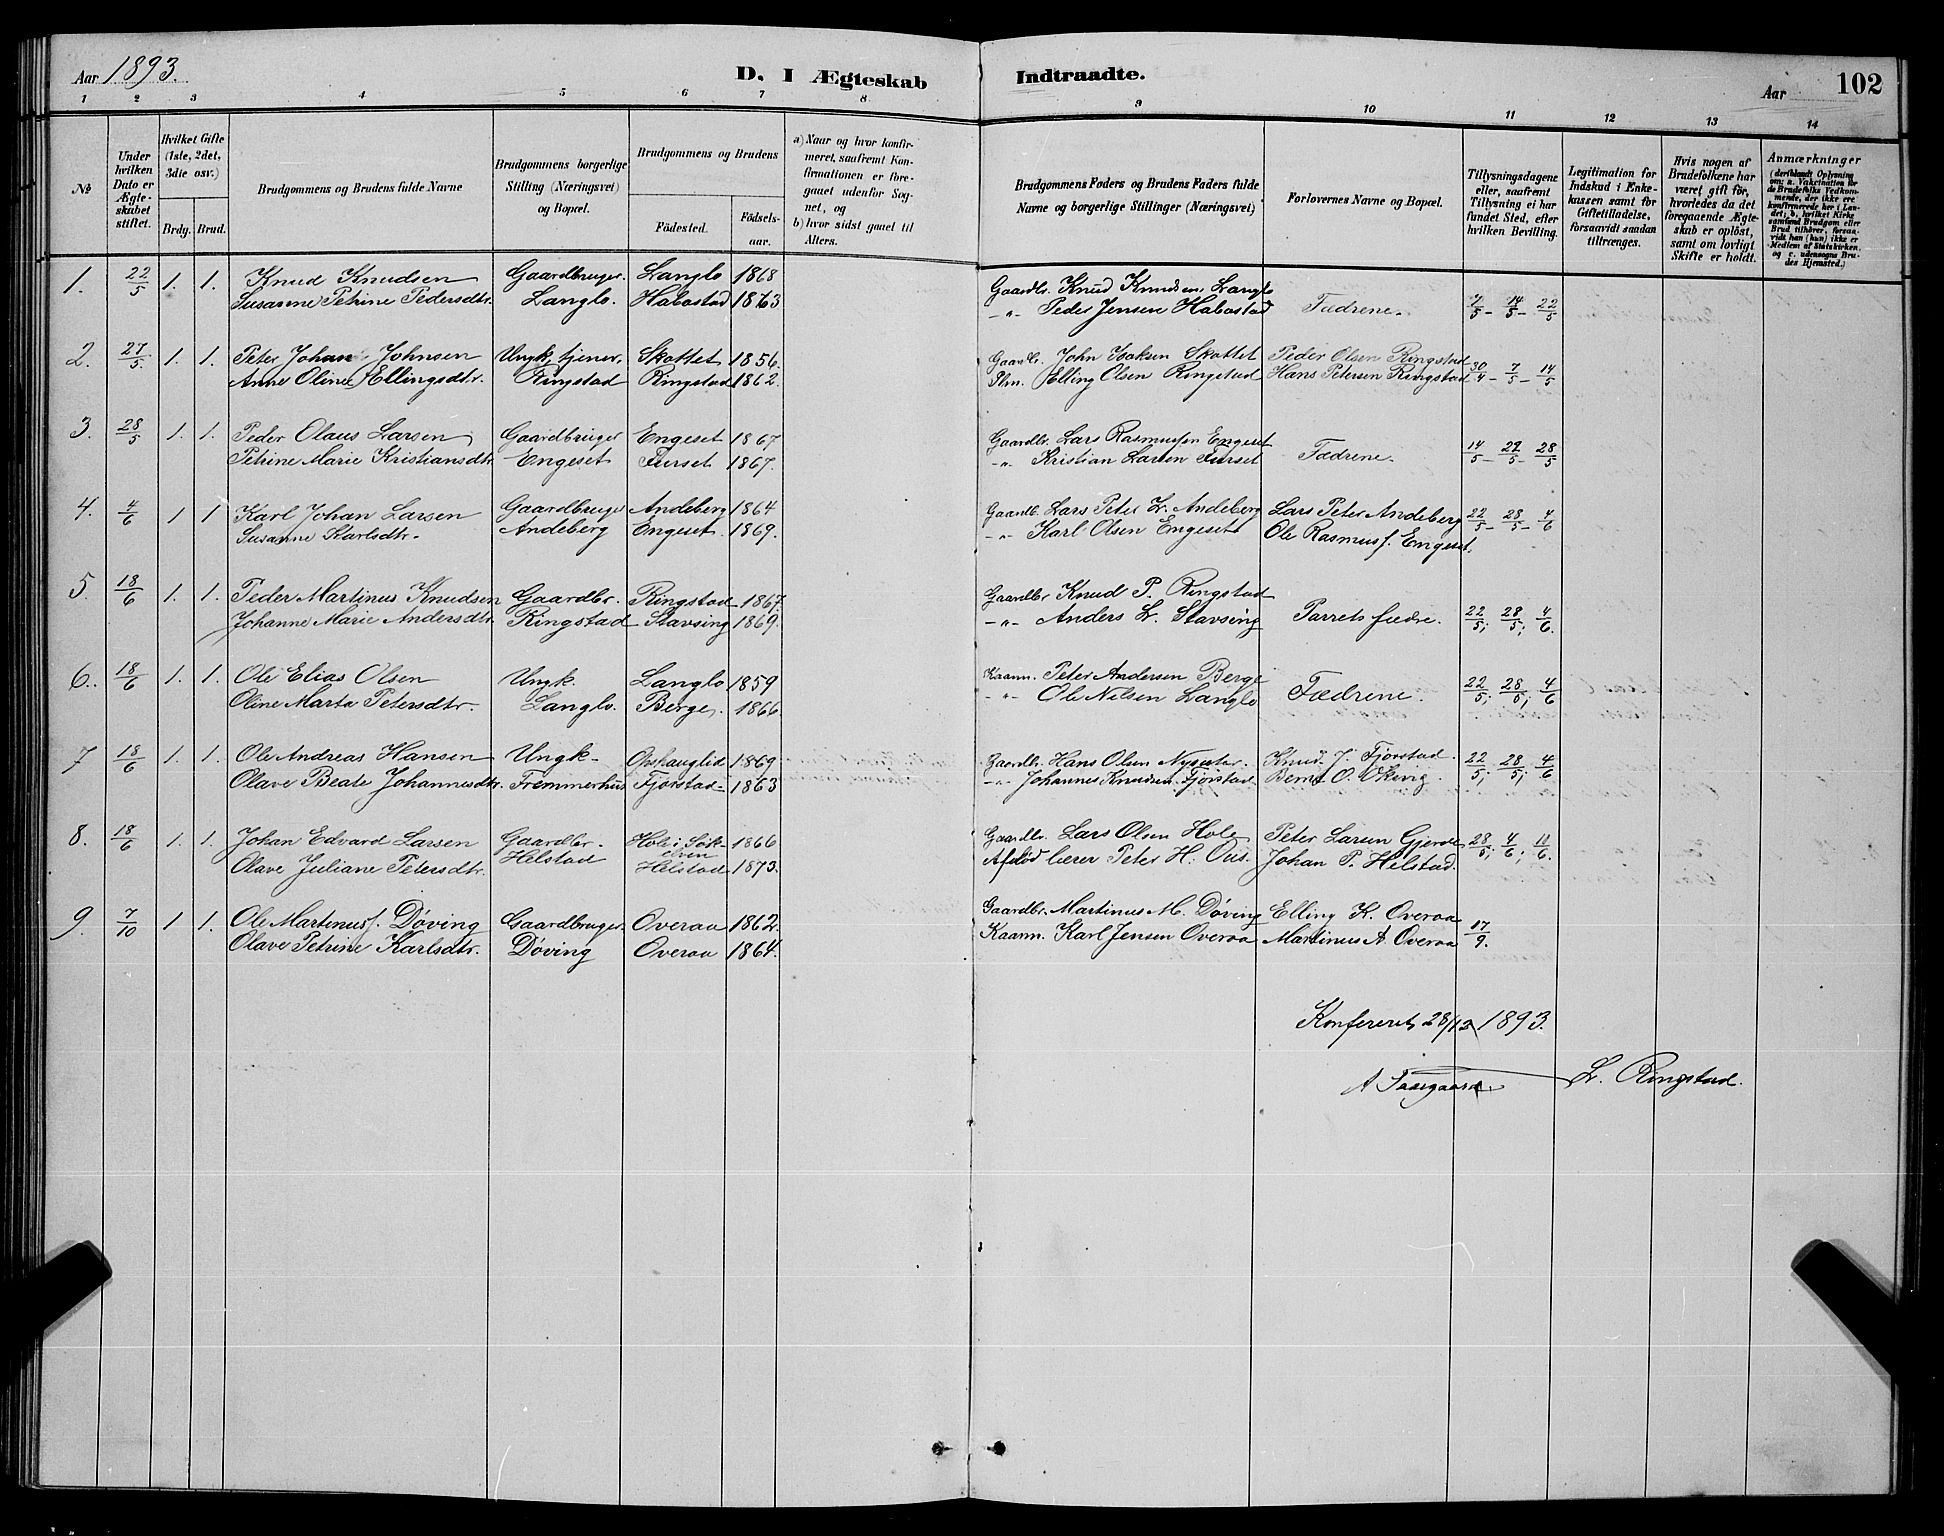 Aar 1893.
D. I Ægteskab Indtraadte.
Aar 102
1 2 3 4 5 6 7 8 9 10 11 12 13 14
№
Under hvilken Dato er Ægteskabet stiftet.
Hvilket Gifte (1ste, 2det, 3die osv.)
Brdg. Brud.
Brudgommens og Brudens fulde Navne
Brudgommens borgerlige Stilling (Næringsvei) og Bopæl.
Brudgommens og Brudens
Födested. Födselsaar.
a) Naar og hvor konfirmeret, saafremt Konfirmationen er foregaaet udenfor Sognet, og
b) hvor sidst gaaet til Alters.
Brudgommens Faders og Brudens Faders fulde Navne og borgerlige Stillinger (Næringsvei)
Forlovernes Navne og Bopæl.
Tillysningsdagene eller, saafremt Tillysning ei har fundet Sted, efter hvilken Bevilling.
Legitimation for Indskud i Enkekassen samt for Giftetilladelse, forsaavidt saadan tiltrænges.
Hvis nogen af Brudefolkene har været gift før, hvorledes da det foregaaende Ægteskab er opløst, samt om lovligt Skifte er holdt.
Anmærkninger
(deriblandt Oplysning om: a. Vakcination for de Brudefolks Vedkommende, der ikke ere konfirmerede her i Landet; b. hvilket Kirkesamfund Brudgom eller Brud tilhører, forsaavidt han (hun) ikke er Medlem af Statskirken, og c. udensogns Brudes Hjemsted.)
1. 22/5 1. 1. Knud Knudsen Gaardbruger. Langlo 1868 Gaardbr. Knud Knudsen Langlo
Susanne Petrine Pedersdtr. Langlo. Habostad 1863 -"- Peder Jensen Habostad Fædrene. 7/5 - 14/5 - 22/5
2. 27/5. 1. 1. Peter Johan Johnsen Ungk, tjener, Skottet 1856. Gaardbr. John Isaksen Skottet Peder Olsen Ringstad
Anne Oline Ellingsdtr. Ringstad Ringstad 1862. Plm. Elling Olsen Ringstad Hans Petersen Ringstad 30/4 - 7/5 - 14/5
3. 28/5 1. 1. Peder Olaus Larsen Gaardbruger Engeset 1867 Gaardbr. Lars Rasmussen Engeset
Petrine Marie Kristiansdtr. Engeset Furset 1867. -"- Kristian Larsen Furset Fædrene. 14/5 - 22/5 - 28/5
4. 4/6 1 1 Karl Johan Larsen Gaardbruger Andeberg 1864 Gaardb. Lars Peter L. Andeberg Lars Peter Andeberg 22/5 - 28/5 - 4/6
Susanne Karlsdtr. Andeberg Engeset. 1869. -"- Karl Olsen Engeset Ole Rasmusf. Engeset.
5. 18/6 1. 1. Peder Martinus Knudsen Gaardbr. Ringstad 1867. Gaardbr Knud P. Ringstad
Johanne Marie Andersdtr. Ringstad Stavseng 1869. -"- Anders L. Stavseng Parrets fædre. 22/5; 28/5; 4/6.
6. 18/6 1. 1. Ole Elias Olsen Ungk. Langlo 1859 Kaarm. Peter Andersen Berge
Oline Marta Petersdtr. Langlo. Berge. 1866. -"- Ole Nilsen Langlo Fædrene. 22/5; 28/5; 4/6
7 18/6 1. 1. Ole Andreas Hansen Ungk. Opskauglid 1869 Gaardbr. Hans Olsen Nysæter. Knud J. Fjørstad. 22/5; 28/5; 4/6
Olave Beate Johannesdtr. Fremmerhus Fjørstad 1863 -"- Johannes Knudsen Fjørstad Bernt O. Ekrevig.
8. 18/6 1. 1. Johan Edvard Larsen Gaardbr. Hole i Sökelven 1866 Gaardbr. Lars Olsen Hole Peter Larsen Gjerde 28/5; 4/6; 11/6.
Olave Juliane Petersdtr. Helstad Helstad 1873. Afdød lærer Peter H. Ous. Johan P. Helstad.
9. 7/10 1 1. Ole Martinusf. Døving Gaardbruger. Overaa 1862. Gaardbr. Martinus M. Døving Elling K. Overaa
Olave Petrine Karlsdtr. Døving Overaa 1864. Kaarm. Karl Jensen Overaa Martinus A. Overaa 17/9.
Konfereret 28/12 1893.
A Taargaard. L. Ringstad.